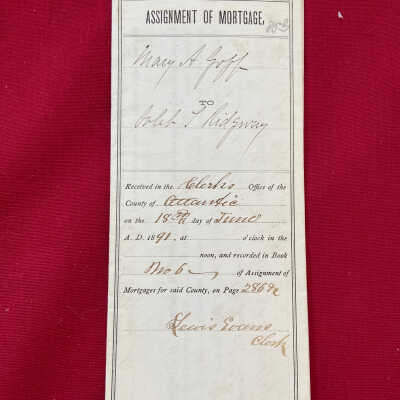 ASSIGNMENT OF MORTGAGE.
Mary A. Goff
TO
Caleb S Ridgway
Received in the Clerks Office of the
County of Atlantic
on the 18th day of June
A. D. 1891, at o'clock in the
noon, and recorded in Book
No 6 of Assignment of
Mortgages for said County, on Page 286 &c
Lewis Evans
Clerk